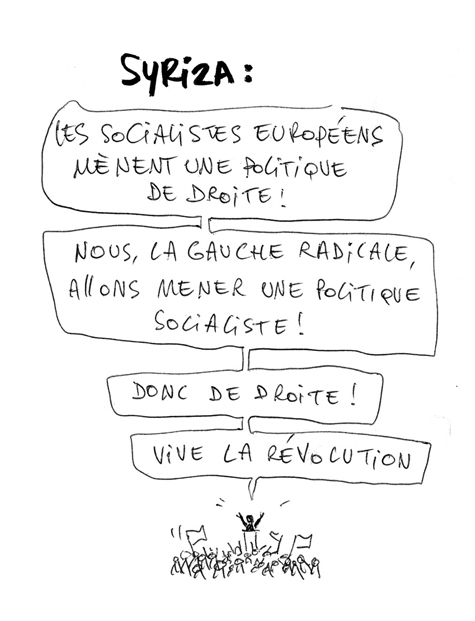 SYRIZA :
LES SOCIALISTES EUROPÉENS
MÈNENT UNE POLITIQUE
DE DROITE !
NOUS, LA GAUCHE RADICALE,
ALLONS MENER UNE POLITIQUE
SOCIALISTE !
DONC DE DROITE !
VIVE LA RÉVOLUTION